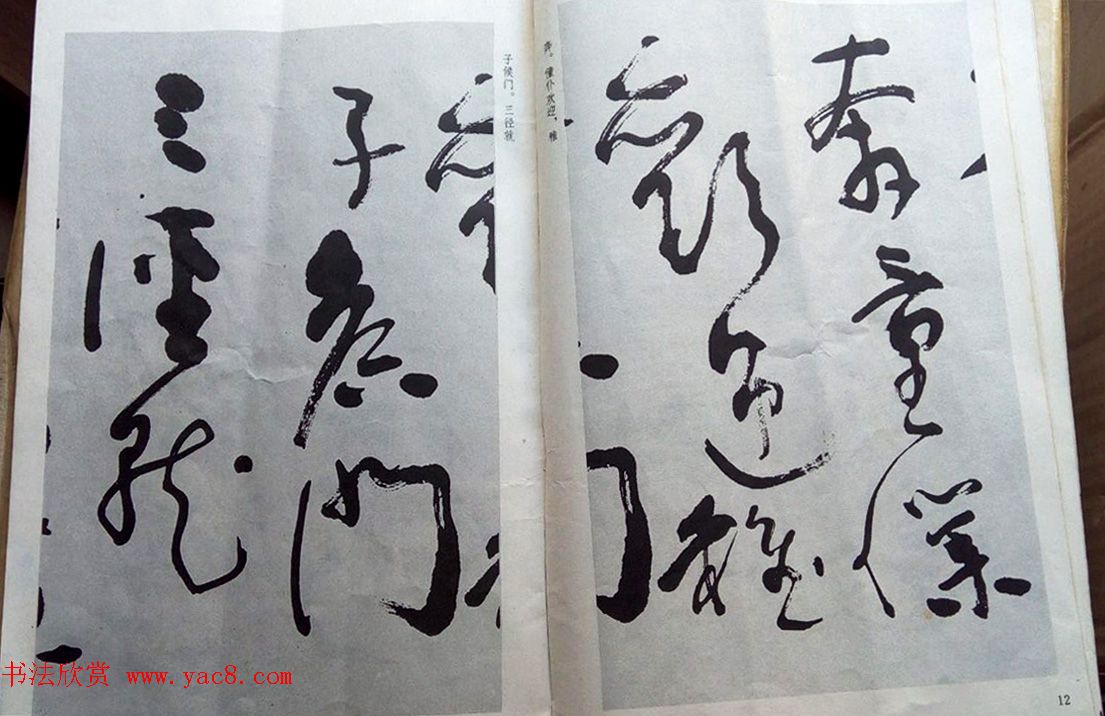 奔僮僕
歡迎稚
奔。僮仆欢迎，稚
子候門
三徑就
子候门。三径就
12
书法欣赏 www.yac8.com